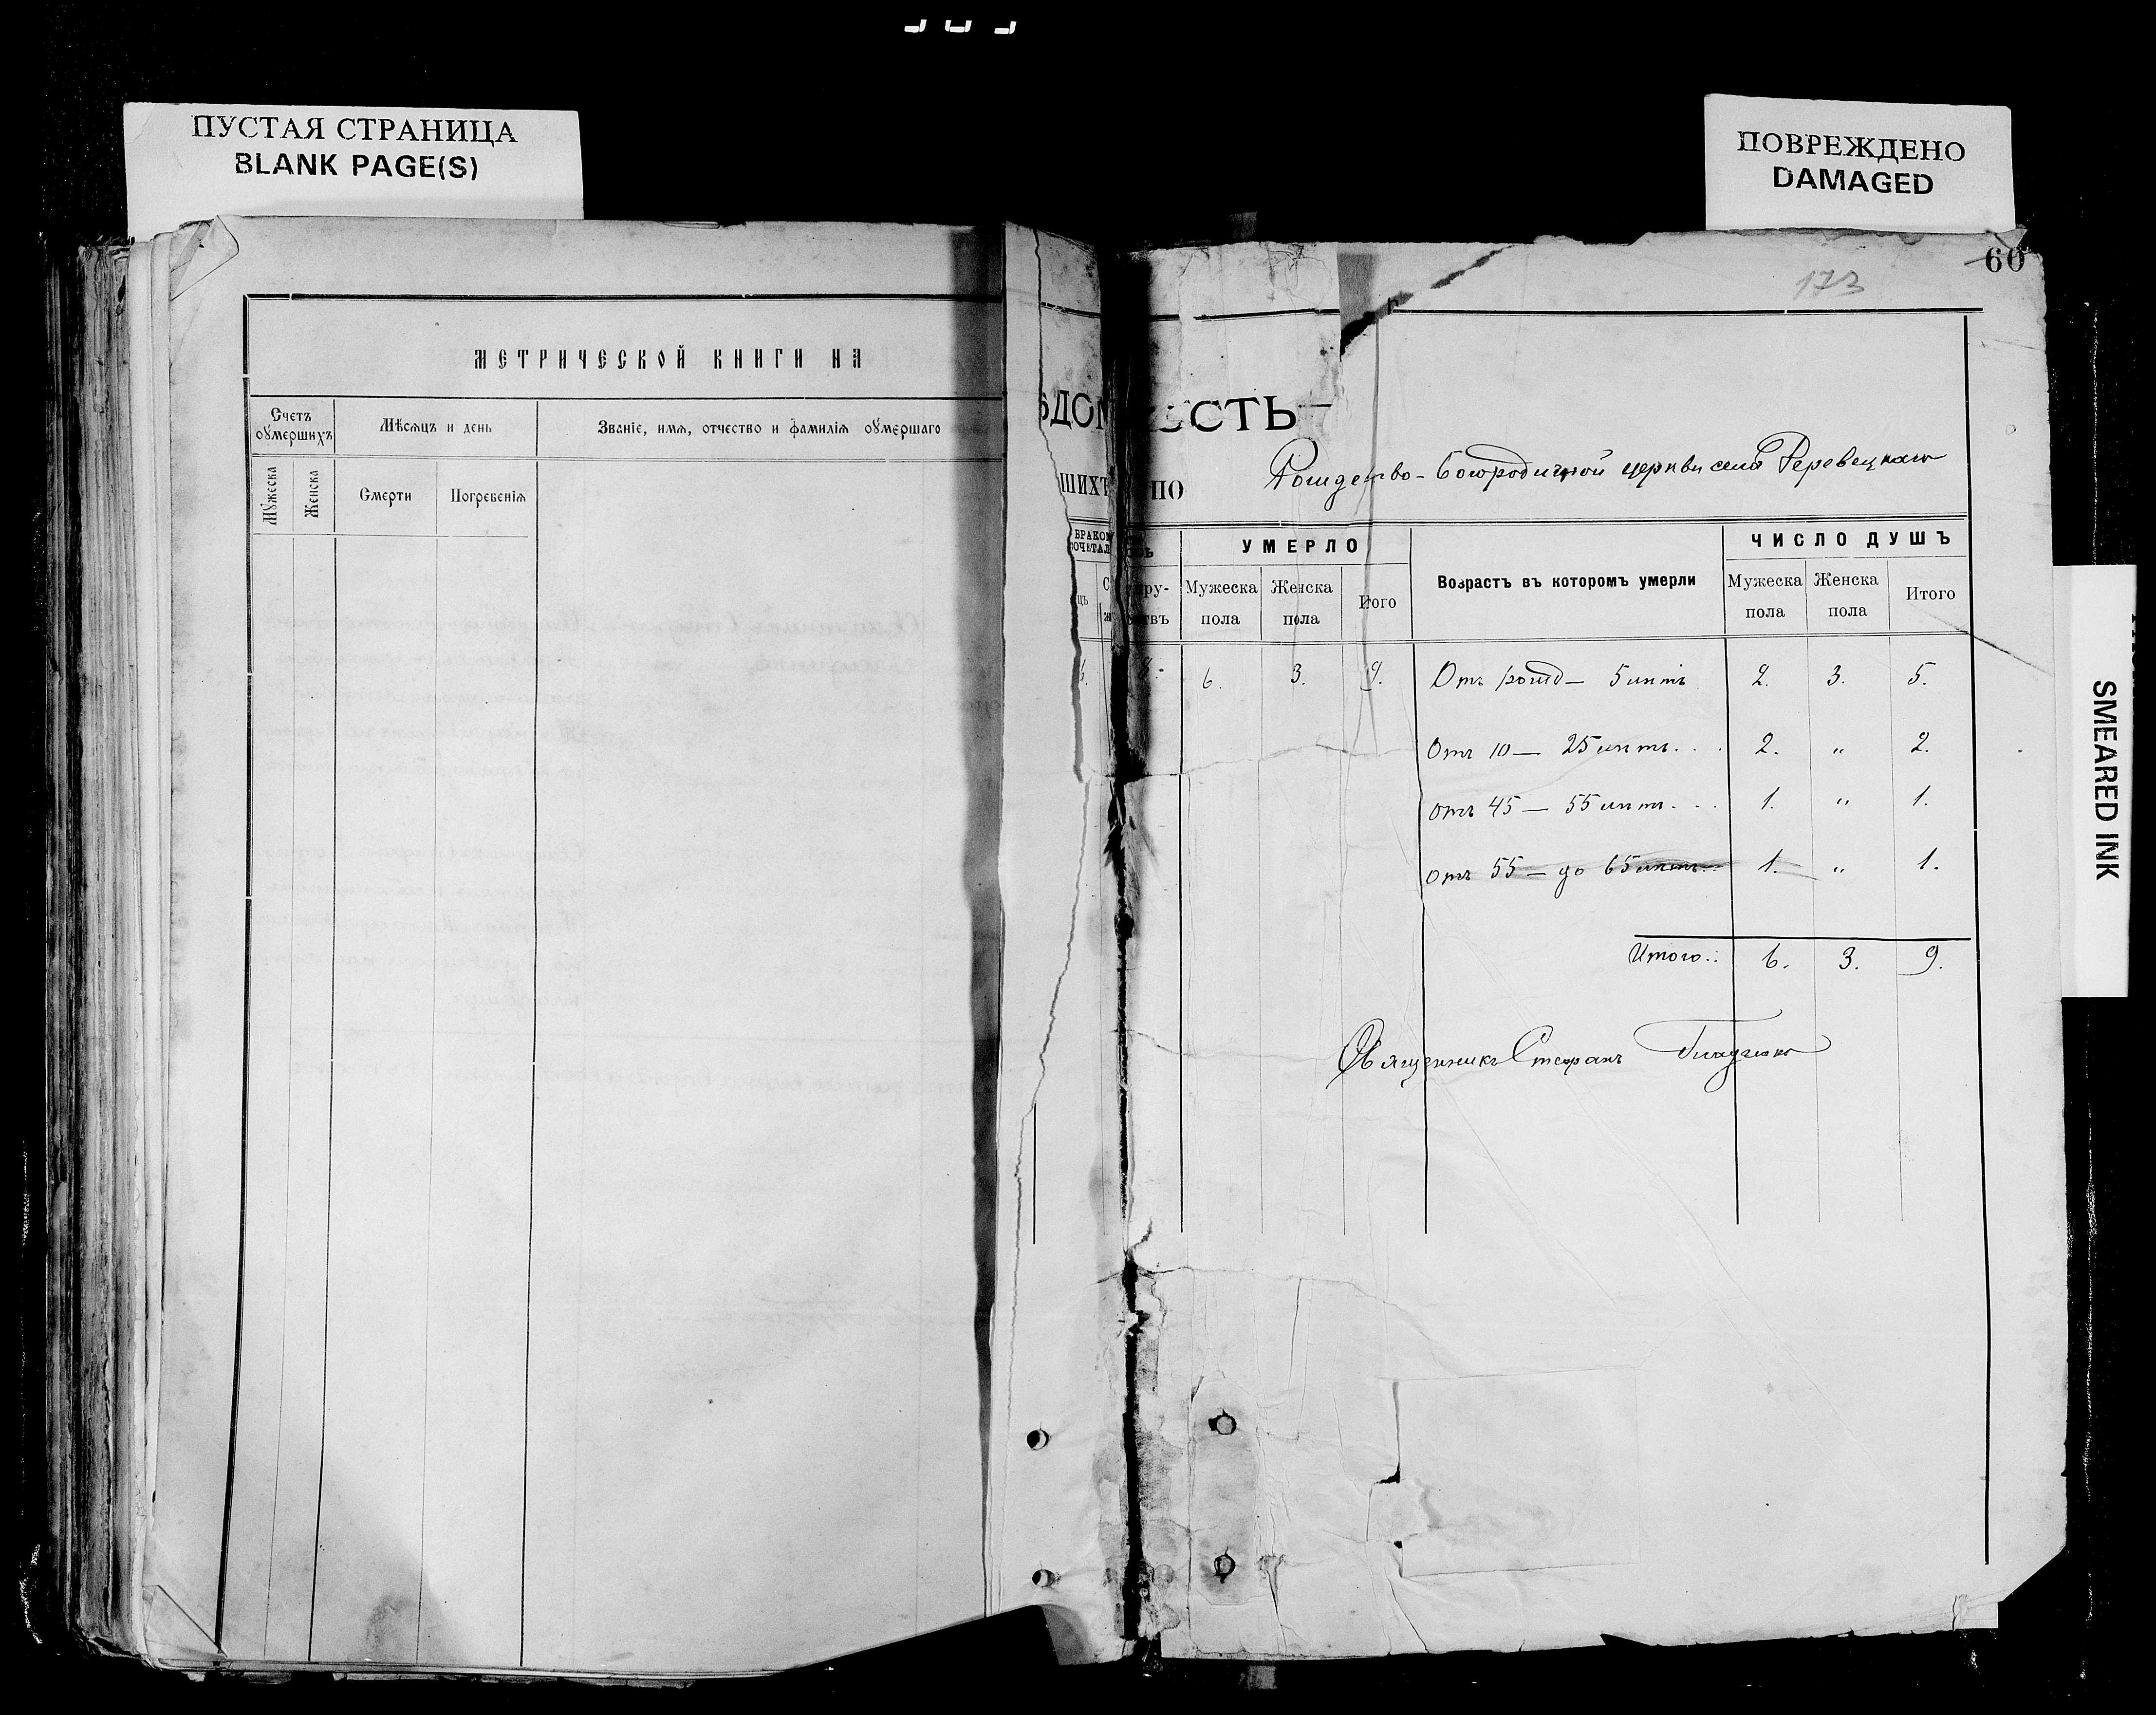 ПУСТАЯ СТРАНИЦА
BLANK PAGE(S)
ПОВРЕЖДЕНО
DAMAGED
SMEARED INK
МЕТРИЧЕСКОЙ КНИГИ НА
Счетъ оумершихъ
Мѣсяцъ и день
Званіе, имя, отчество и фамилія оумершаго
Мужеска
Женска
Смерти
Погребенія
60
173
ѢДОМ СТЬ
ШИХЪ ПО Рождество-Богородичной церкви села Деревецкаго
БРАКОМ
СОЧЕТАЛ
УМЕРЛО
Возрастъ въ которомъ умерли
ЧИСЛО ДУШЪ
Мужеска пола
Женска пола
Итого
Мужеска пола
Женска пола
Итого
6. 3. 9. Отъ рожд— 5 лѣтъ 2. 3. 5.
Отъ 10 — 25 лѣтъ . . . 2. „ 2.
Отъ 45 — 55 лѣтъ . . . 1. „ 1.
Отъ 55 — до 65 лѣтъ 1. „ 1.
Итого .: 6. 3. 9.
Священникъ Стефанъ